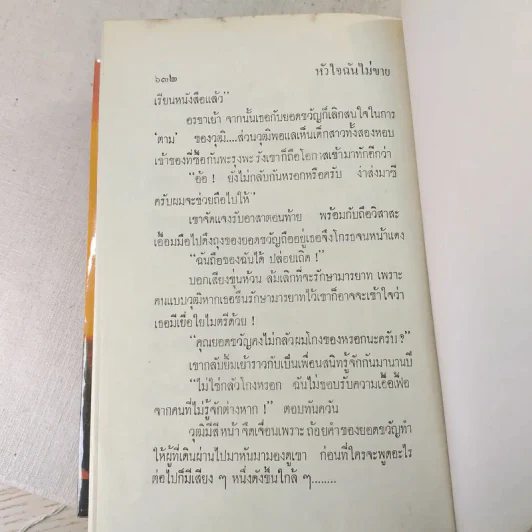 ๖๓๒
หัวใจฉันไม่ขาย
เรียนหนังสือแล้ว"
อรชาเย้า จากนั้นเธอกับยอดขวัญก็เลิกสนใจในการ
'ตาม' ของวุฒิ....ส่วนวุฒิพอแลเห็นเด็กสาวทั้งสองหอบ
เข้าของที่ซื้อกันพะรุงพะรังเขาก็ถือโอกาสเข้ามาทักอีกว่า
"อ้อ ! ยังไม่กลับกันหรอกหรือครับ ง่าส่งมาซี
ครับผมจะช่วยถือไปให้"
เขาจัดแจงรับอาสาตอนท้าย พร้อมกับถือวิสาสะ
เอื้อมมือไปดึงถุงของยอดขวัญถืออยู่เธอจึงโกรธจนหน้าแดง
"ฉันถือของฉันได้ ปล่อยเถิด !"
บอกเสียงขุ่นห้วน ล้มเลิกที่จะรักษามารยาท เพราะ
คนแบบวุฒิหากเธอขืนรักษามารยาทไว้เขาก็อาจจะเข้าใจว่า
เธอมีเยื่อใยไมตรีด้วย !
"คุณยอดขวัญคงไม่กลัวผมโกงของหรอกนะครับ ?"
เขากลับยิ้มเย้าราวกับเป็นเพื่อนสนิทรู้จักกันมานานปี
"ไม่ใช่กลัวโกงหรอก ฉันไม่ชอบรับความเอื้อเฟื้อ
จากคนที่ไม่รู้จักต่างหาก !" ตอบทันควัน
วุฒิมีสีหน้าจืดเจื่อนเพราะถ้อยคำของยอดขวัญทำ
ให้ผู้ที่เดินผ่านไปมาหันมามองดูเขา ก่อนที่ใครจะพูดอะไร
ต่อไปก็มีเสียง ๆ หนึ่งดังขึ้นใกล้ ๆ........